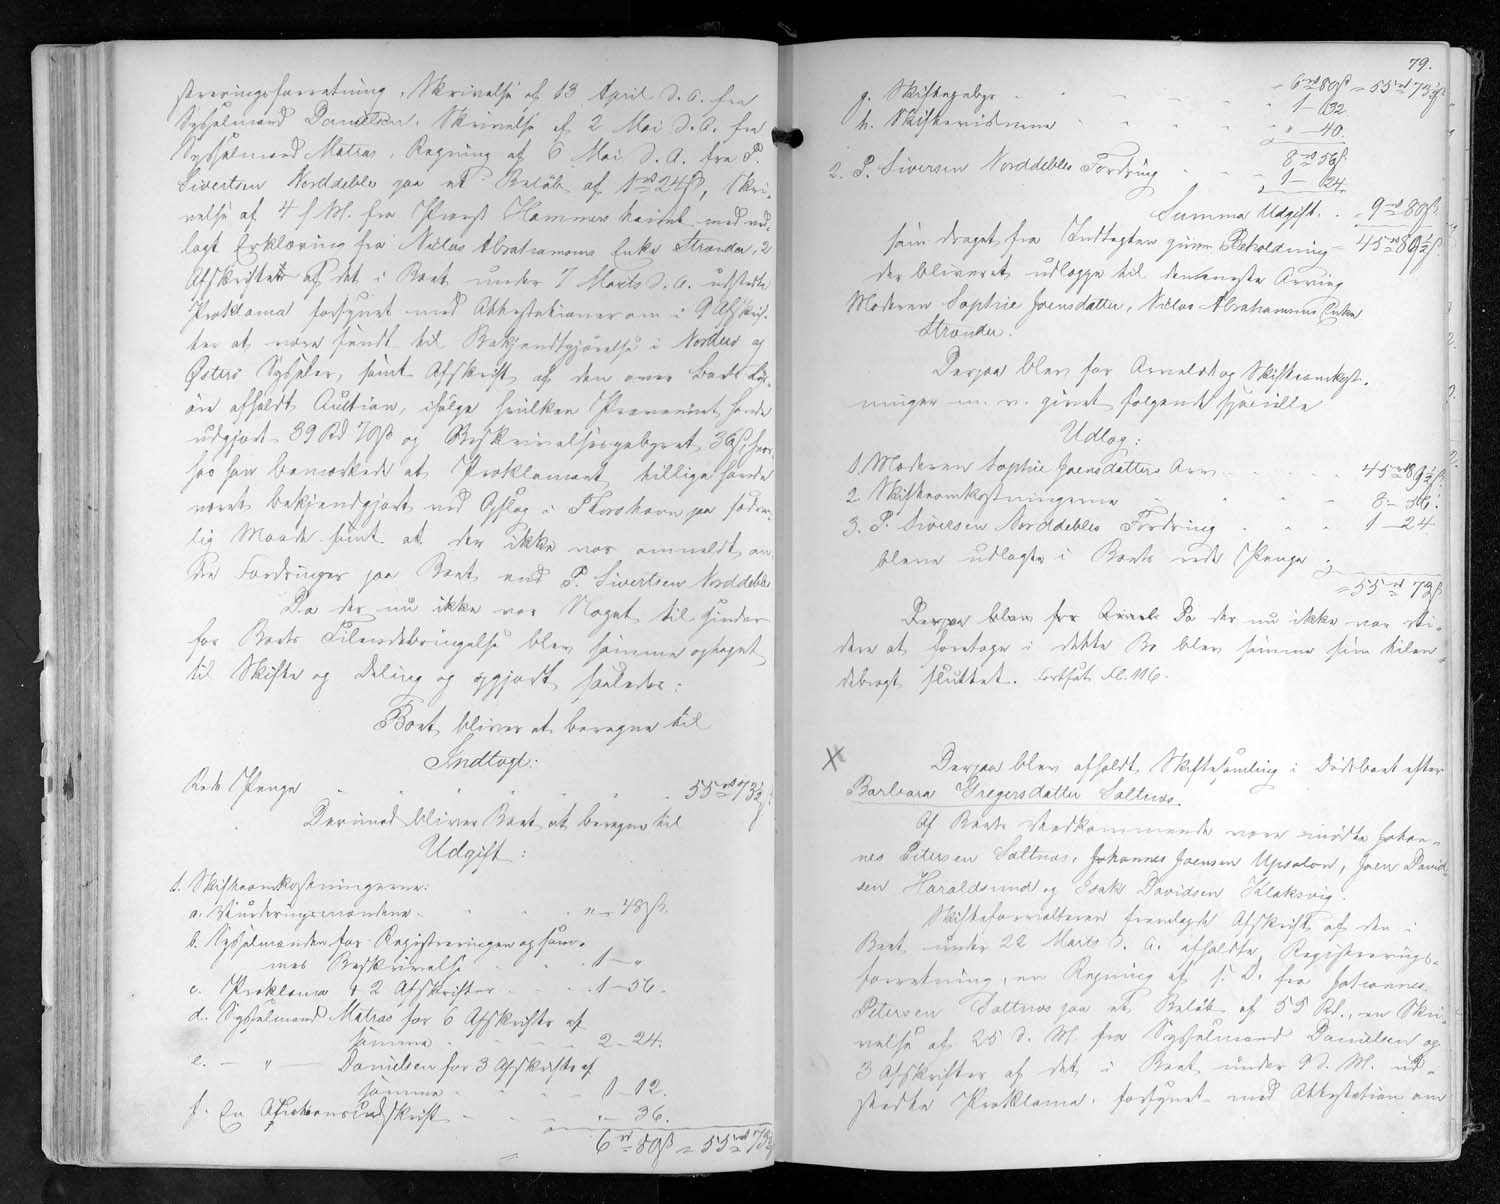 streringsforretning, Skrivelse af 13 April d. A. fra
Sysselmand Danielsen, Skrivelse af 2 Mai d. A. fra
Sysselmand Matras, Regning af 6 Mai d. A. fra P.
Sivertsen Norddeble paa et Beløb af 1 rd 24 ß, Skri-
velse af 4 f. M. fra Provst Hammershaimb med ved-
lagt Erklæring fra Niclas Abrahamsens Enke Strænder, 2
Afskrifter af det i Boet under 7 Marts d. A. udstedte
Proklama forsynet med Attestationer om i 9 Afskrif-
ter at være sendt til Bekjendtgjørelse i Norderø og
Østerø Sysseler, samt Afskrift af den over Boets Løs-
øre afholdt Auktion, ifølge hvilken Provenuet havde
udgjort 39 Rd 70 ß og Beskrivelsesgebyret 36 ß, hvor-
hos han bemærkede at Proklamaet tillige havde
været bekjendtgjort ved Opslag i Thorshavn paa sædvan-
lig Maade samt at der ikke var anmeldt an-
dre Fordringer paa Boet end P. Sivertsen Norddebles
Da der nu ikke var Noget til Hinder
for Boets Tilendebringelse blev samme optaget
til Skifte og Deling og opgjort saaledes:
Boet bliver at beregne til
Indtægt:
Rede Penge 55 rd 73½ ß
Derimod bliver Boet at beregne til
Udgift:
1. Skifteomkostningerne:
a. Vurderingsmændene " – 48 ß.
b. Sysselmanden for Registreringen og sam-
mes Beskrivelse 1 – "
c. Proklama & 2 Afskrifter 1 – 56.
d. Sysselmand Matras for 6 Afskrifter af
samme 2 – 24.
e. – " – Danielsen for 3 Afskrifter af
samme 1 – 12.
f. En Auktionsudskrift " – 36.
6 rd 80 ß = 55 rd 73½
79.
6 rd 80 ß = 55 rd 73½ ß
g. Skiftegebyr 1 – 32.
h. Skiftevidnerne " – 40.
8 rd 56 ß
2. P. Siversen Norddebles Fordring 1 – 24.
Summa Udgift. = 9 rd 80 ß
som draget fra Indtægten giver Beholdning = 45 rd 89½ ß.
der bliver at udlægge til den eneste Arving
Moderen Sophie Joensdatter, Niclas Abrahamsens Enke
Strænder.
Derpaa blev for Arvelod og Skifteomkost-
ninger m. v. givet følgende specielle
Udlæg:
1. Moderen Sophie Joensdatters Arv 45 rd 89½ ß.
2. Skifteomkostningerne 8 – 56.
3. P. Siversen Norddebles Fordring 1 – 24.
blev udlagte i Boets rede Penge
= 55 rd 73½ ß
Derpaa blev for Da der nu ikke var vi-
dere at foretage i dette Bo blev samme som tilen-
debragt sluttet. Fortsat Fl. 116.
X
Derpaa blev afholdt Skiftesamling i Dødsboet efter
Barbara Gregersdatter Saltnæs.
Af Boets Vedkommende vare mødte Johan-
nes Petersen Saltnæs, Johannes Joensen Upsalon, Joen David-
sen Haraldsund og Esak Davidsen Klaksvig.
Skifteforvalteren fremlagde Afskrift af den i
Boet under 22 Marts d. A. afholdte Registrerings-
forretning, en Regning af s. D. fra Johannes
Petersen Saltnæs paa et Beløb af 55 Rd., en Skri-
velse af 25 d. M. fra Sysselmand Danielsen og
3 Afskrifter af det i Boet under 9 d. M. ud-
stedte Proklama, forsynet med Attestation om